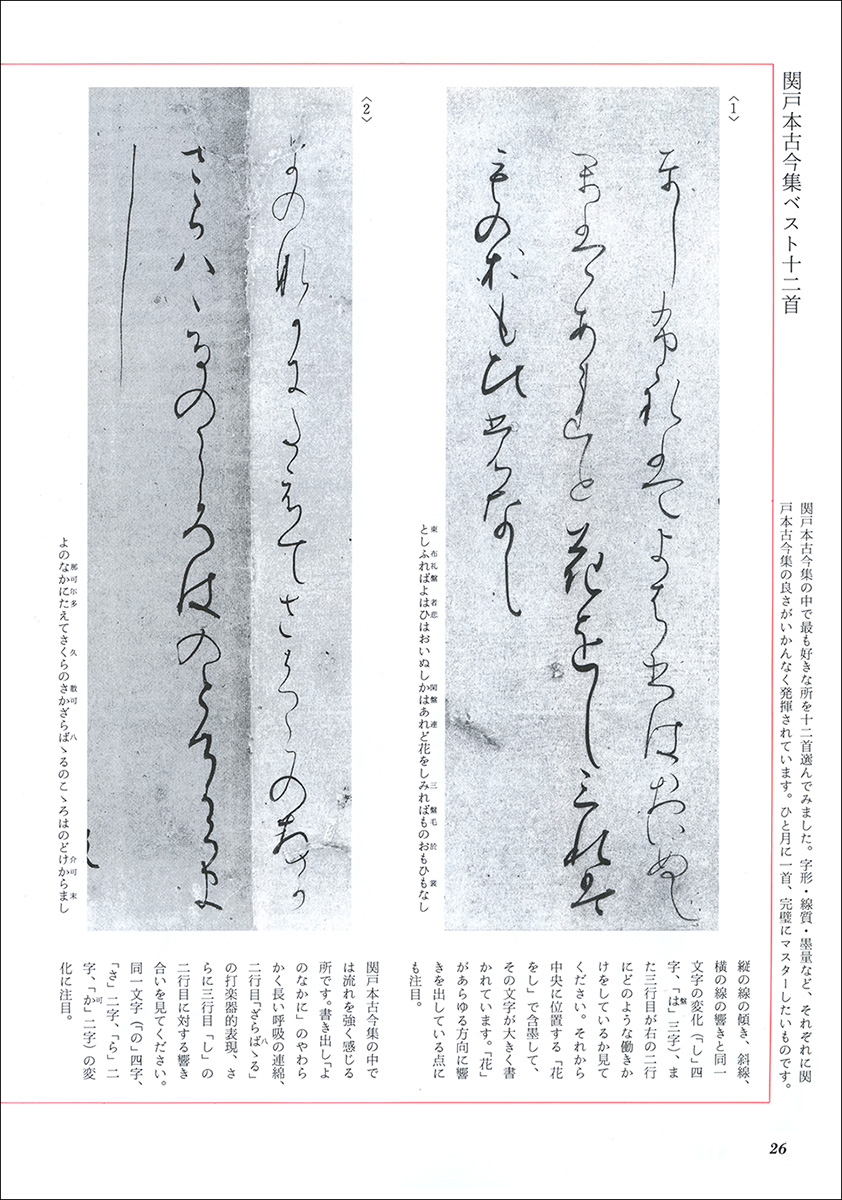 関戸本古今集ベスト十二首
関戸本古今集の中で最も好きな所を十二首選んでみました。字形・線質・墨量など、それぞれに関
戸本古今集の良さがいかんなく発揮されています。ひと月に一首、完璧にマスターしたいものです。
〈1〉
としふれはよはひはおいぬし
かはあれと花をしみれは
ものおもひもなし
東 布礼盤 者悲 閑盤 連 三盤毛 於 裳
としふればよはひはおいぬしかはあれど花をしみればものおもひもなし
縦の線の傾き、斜線、
横の線の響きと同一
文字の変化(「し」四
字、「は」盤三字)、ま
た三行目が右の二行
にどのような働きか
けをしているか見て
ください。それから
中央に位置する「花
をし」で含墨して、
その文字が大きく書
かれています。「花」
があらゆる方向に響
きを出している点に
も注目。
〈2〉
よのなかにたえてさくらのさか
さらはゝるのこゝろはのとけからま
し
那可尓多 久 散可 八 介可 末
よのなかにたえてさくらのさかざらばゝるのこゝろはのどけからまし
関戸本古今集の中で
は流れを強く感じる
所です。書き出し「よ
のなかに」のやわら
かく長い呼吸の連綿、
二行目「ざらば八ゝる」
の打楽器的表現、さ
らに三行目「し」の
二行目に対する響き
合いを見てください。
同一文字(「の」四字、
「さ」二字、「ら」二
字、「か」可二字)の変
化に注目。
26